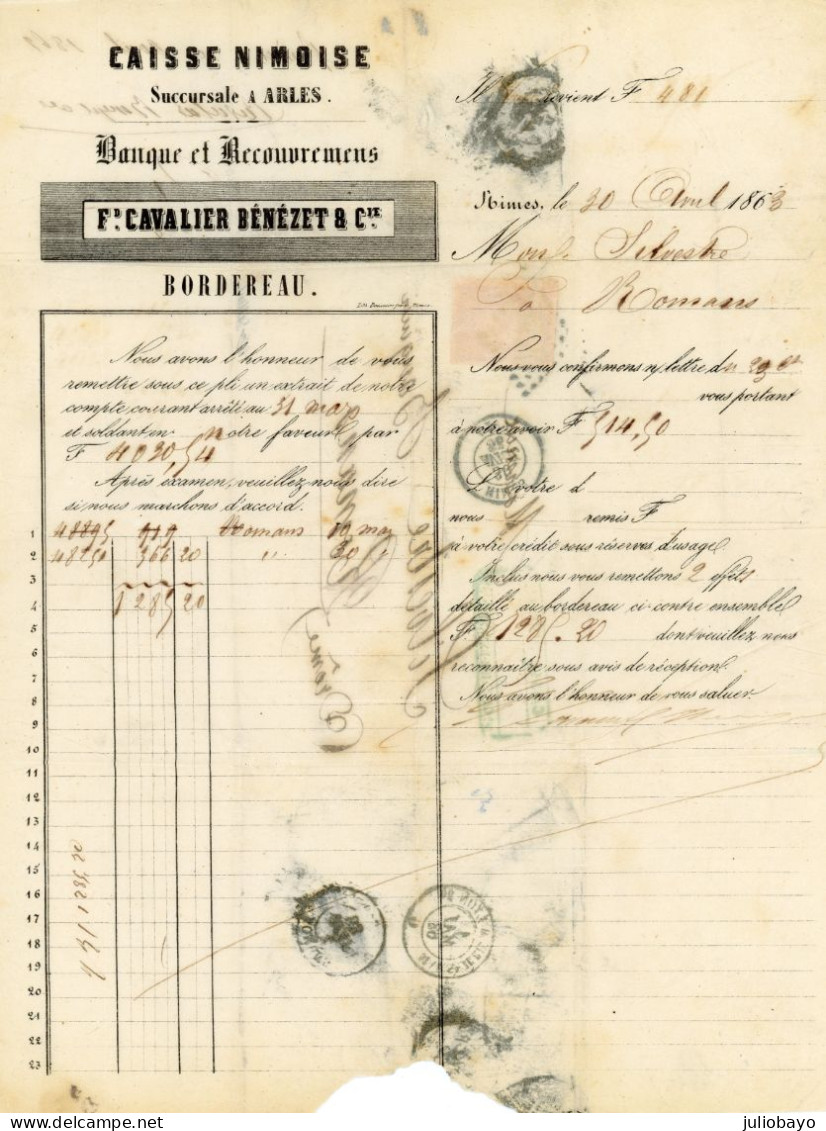 CAISSE NIMOISE
Succursale A ARLES.
Banque et Recouvremens
Fd. CAVALIER BÉNÉZET & Cie.
BORDEREAU.
Il revient F 481
Nimes, le 30 Avril 1863
Mons. Silvestre
à Romans
Nous avons l'honneur de vous
remettre sous ce pli un extrait de notre
compte courant arrêté au 31 mars
et soldant en notre faveur par
F 4020,54
Après examen, veuillez nous dire
si nous marchons d'accord.
Nous vous confirmons n/ lettre du 29 ct
vous portant
à notre avoir F 514,50
L votre d
nous remis F
à votre crédit sous réserves d'usage.
Inclus nous vous remettons 2 effets
détaillé au bordereau ci-contre ensemble
F. 1285.20 dont veuillez nous
reconnaître sous avis de réception.
Nous avons l'honneur de vous saluer.
1 48895 919 Romans 10 mai
2 48250 366 20 " 30 "
3
4 1285 20
5
6
7
8
9
10
11
12
13
14
15
16
17
18
19
20
21
22
23
1285,20
(Drôme)
juliobayo